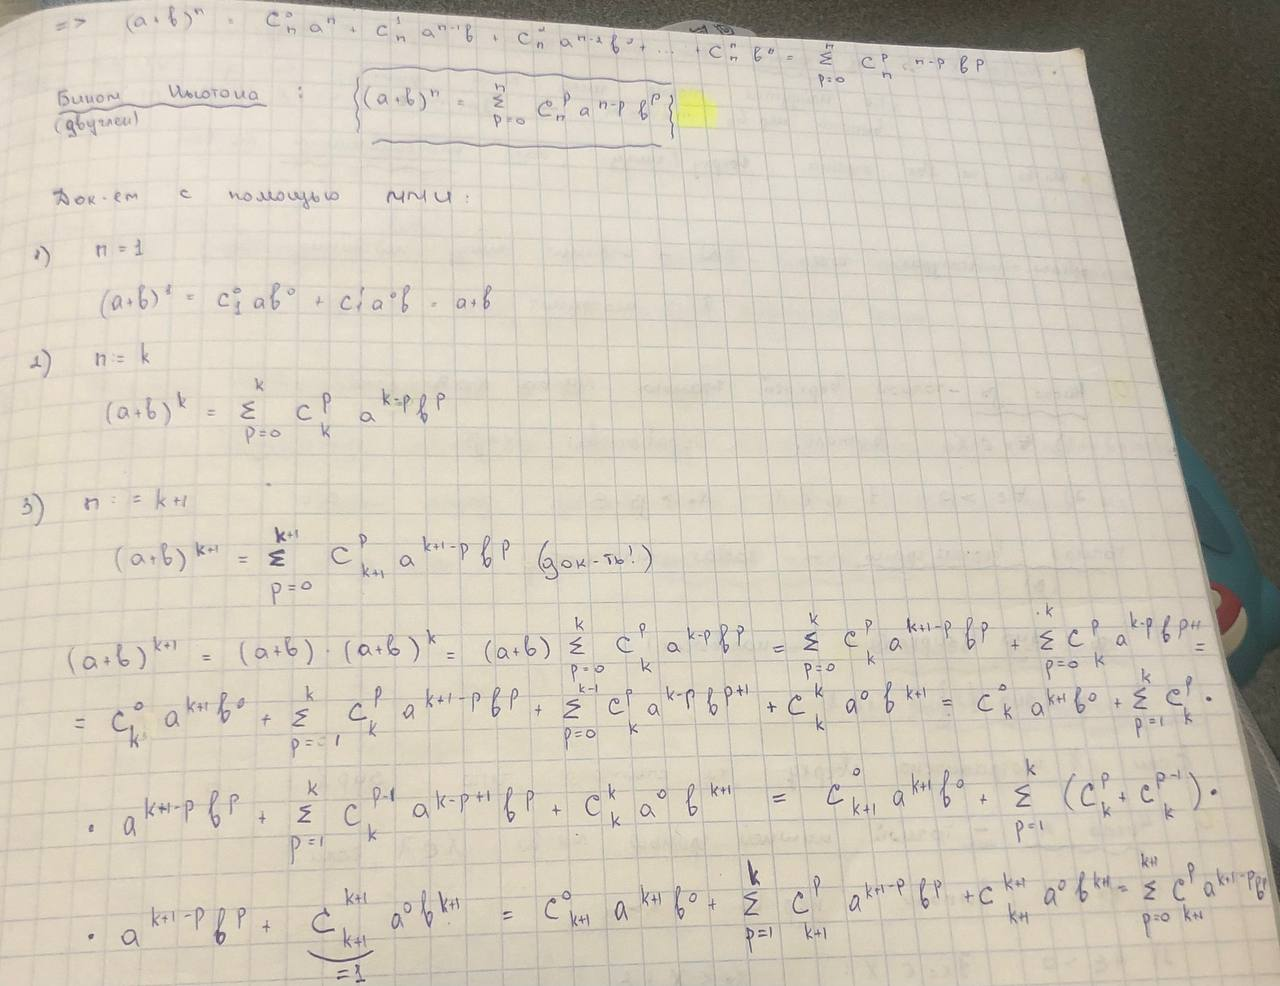 => (a+b)ⁿ = Cₙ⁰ aⁿ + Cₙ¹ aⁿ⁻¹b + Cₙ² aⁿ⁻²b² + ... + Cₙⁿ bⁿ = Σ_{p=0}^{n} C_n^p a^{n-p} b^p
Бином Ньютона : {(a+b)^n = Σ_{p=0}^{n} C_n^p a^{n-p} b^p}
(двучлен)
Док-ем с помощью ММИ:
1) n = 1
(a+b)^1 = C_1^0 ab^0 + C_1^1 a^0 b = a+b
2) n := k
(a+b)^k = Σ_{p=0}^{k} C_k^p a^{k-p} b^p
3) n := k+1
(a+b)^{k+1} = Σ_{p=0}^{k+1} C_{k+1}^p a^{k+1-p} b^p (док-ть!)
(a+b)^{k+1} = (a+b) · (a+b)^k = (a+b) Σ_{p=0}^{k} C_k^p a^{k-p} b^p = Σ_{p=0}^{k} C_k^p a^{k+1-p} b^p + Σ_{p=0}^{k} C_k^p a^{k-p} b^{p+1} =
= C_k^0 a^{k+1} b^0 + Σ_{p=1}^{k} C_k^p a^{k+1-p} b^p + Σ_{p=0}^{k-1} C_k^p a^{k-p} b^{p+1} + C_k^k a^0 b^{k+1} = C_k^0 a^{k+1} b^0 + Σ_{p=1}^{k} C_k^p ·
· a^{k+1-p} b^p + Σ_{p=1}^{k} C_k^{p-1} a^{k-p+1} b^p + C_k^k a^0 b^{k+1} = C_{k+1}^0 a^{k+1} b^0 + Σ_{p=1}^{k} (C_k^p + C_k^{p-1}) ·
· a^{k+1-p} b^p + C_{k+1}^{k+1} a^0 b^{k+1} = C_{k+1}^0 a^{k+1} b^0 + Σ_{p=1}^{k} C_{k+1}^p a^{k+1-p} b^p + C_{k+1}^{k+1} a^0 b^{k+1} = Σ_{p=0}^{k+1} C_{k+1}^p a^{k+1-p} b^p
=1